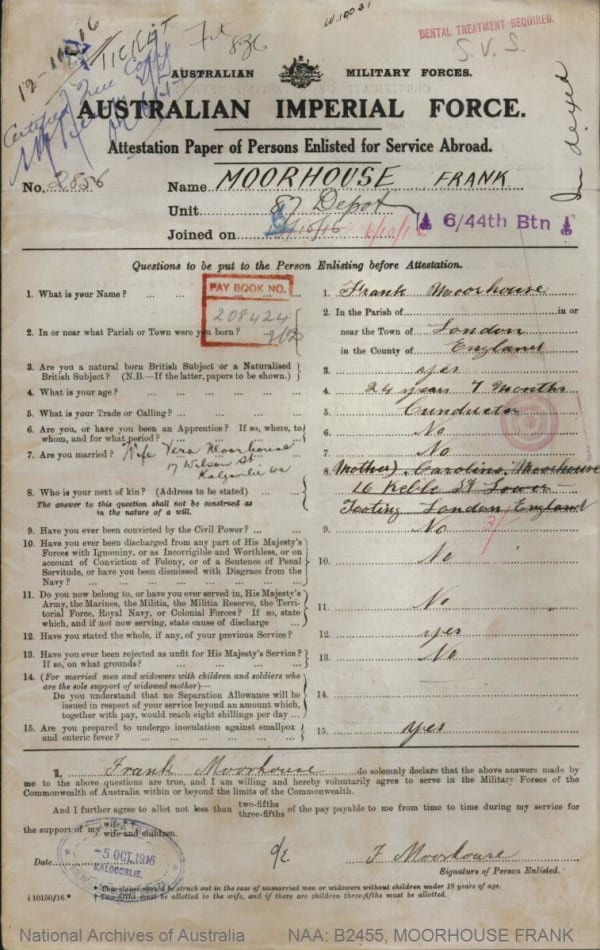 12-10-16
TICKET
836
W10081
DENTAL TREATMENT REQUIRED.
S.V.S.
Certified True Copy
AUSTRALIAN MILITARY FORCES.
AUSTRALIAN IMPERIAL FORCE.
Attestation Paper of Persons Enlisted for Service Abroad.
Indexed
No. 2856
Name MOORHOUSE FRANK
Unit 87 Depot
6/44th Btn
Joined on /10/16
Questions to be put to the Person Enlisting before Attestation.
PAY BOOK NO.
208424
1. What is your Name? ... ... ... 1. Frank Moorhouse
2. In or near what Parish or Town were you born? ... 2. In the Parish of in or
near the Town of London
in the County of England
3. Are you a natural born British Subject or a Naturalised
British Subject? (N.B.—If the latter, papers to be shown.) 3. yes
4. What is your age? ... ... 4. 24 years 7 Months
5. What is your Trade or Calling? ... ... 5. Cunductor
6. Are you, or have you been an Apprentice? If so, where, to
whom, and for what period? ... 6. No
7. Are you married? ... 7. No
Wife Vera Moorhouse
17 Wilson St
Kalgoorlie WA
8. Who is your next of kin? (Address to be stated) ... 8. (Mother) Caroline Moorhouse
16 Keble St Lower
Tooting London England
The answer to this question shall not be construed as
in the nature of a will.
9. Have you ever been convicted by the Civil Power? ... ... 9. No
10. Have you ever been discharged from any part of His Majesty's
Forces with Ignominy, or as Incorrigible and Worthless, or on
account of Conviction of Felony, or of a Sentence of Penal
Servitude, or have you been dismissed with Disgrace from the
Navy? ... ... 10. No
11. Do you now belong to, or have you ever served in, His Majesty's
Army, the Marines, the Militia, the Militia Reserve, the Terri-
torial Force, Royal Navy, or Colonial Forces? If so, state
which, and if not now serving, state cause of discharge ... 11. No
12. Have you stated the whole, if any, of your previous Service? 12. yes
13. Have you ever been rejected as unfit for His Majesty's Service?
If so, on what grounds? ... ... 13. No
14. (For married men and widowers with children and soldiers who
are the sole support of widowed mother)—
Do you understand that no Separation Allowance will be
issued in respect of your service beyond an amount which,
together with pay, would reach eight shillings per day ... 14.
15. Are you prepared to undergo inoculation against smallpox
and enteric fever? ... ... 15. yes
I, Frank Moorhouse do solemnly declare that the above answers made by
me to the above questions are true, and I am willing and hereby voluntarily agree to serve in the Military Forces of the
Commonwealth of Australia within or beyond the limits of the Commonwealth.
And I further agree to allot not less than two-fifths three-fifths of the pay payable to me from time to time during my service for
the support of my wife wife and children.
Date
-5 OCT. 1916
KALGOORLIE.
F. Moorhouse
Signature of Person Enlisted.
* This clause should be struck out in the case of unmarried men or widowers without children under 18 years of age.
† Two-fifths must be allotted to the wife, and if there are children three-fifths must be allotted.
i 10150/16.*
National Archives of Australia NAA: B2455, MOORHOUSE FRANK